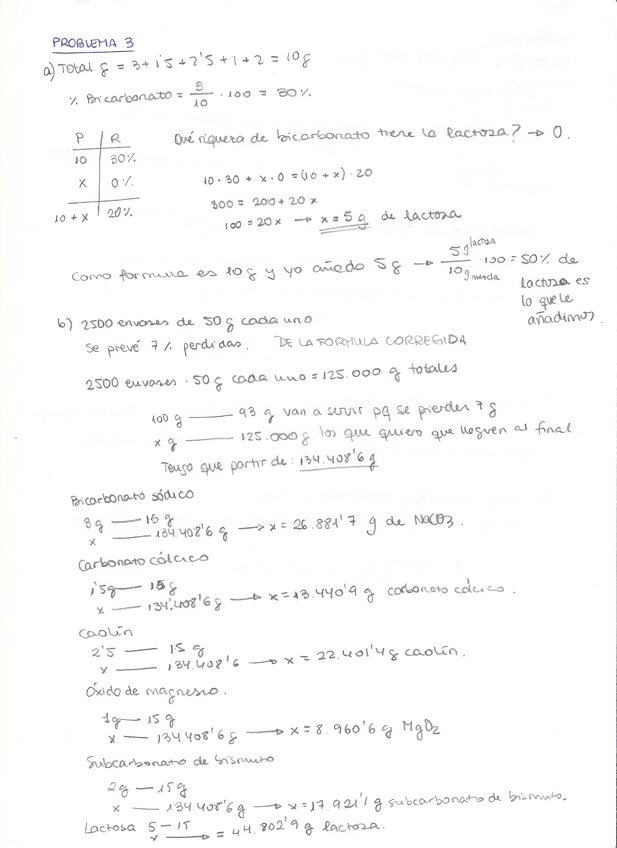 PROBLEMA 3
a) Total g = 3 + 1'5 + 2'5 + 1 + 2 = 10 g
% Bicarbonato = 3/10 · 100 = 30%.
P | R
10 | 30%
x | 0%
10 + x | 20%
Qué riqueza de bicarbonato tiene la lactosa? → 0.
10 · 30 + x · 0 = (10 + x) · 20
300 = 200 + 20 x
100 = 20x → x = 5 g de lactosa
Como formula es 10 g y yo añado 5 g → 5 g lactosa / 10 g mezcla · 100 = 50% de
lactosa es
lo que le
añadimos.
b) 2500 envases de 50 g cada uno
Se prevé 7% perdidas. DE LA FORMULA CORREGIDA
2500 envases · 50 g cada uno = 125.000 g totales
100 g —— 93 g van a servir pq se pierden 7 g
x g —— 125.000 g los que quiero que lleguen al final.
Tengo que partir de: 134.408'6 g
Bicarbonato sódico
3 g —— 15 g
x —— 134.408'6 g → x = 26.881'7 g de NaCO3.
Carbonato cálcico
1'5g —— 15 g
x —— 134.408'6 g → x = 13.440'9 g carbonato cálcico.
Caolín
2'5 —— 15 g
x —— 134.408'6 → x = 22.401'4 g caolín.
Óxido de magnesio.
1g — 15 g
x — 134.408'6 g → x = 8.960'6 g MgO2
Subcarbonato de bismuto
2g — 15 g
x — 134.408'6 g → x = 17.921'1 g subcarbonato de bismuto.
Lactosa 5 — 15
x → = 44.802'9 g lactosa.